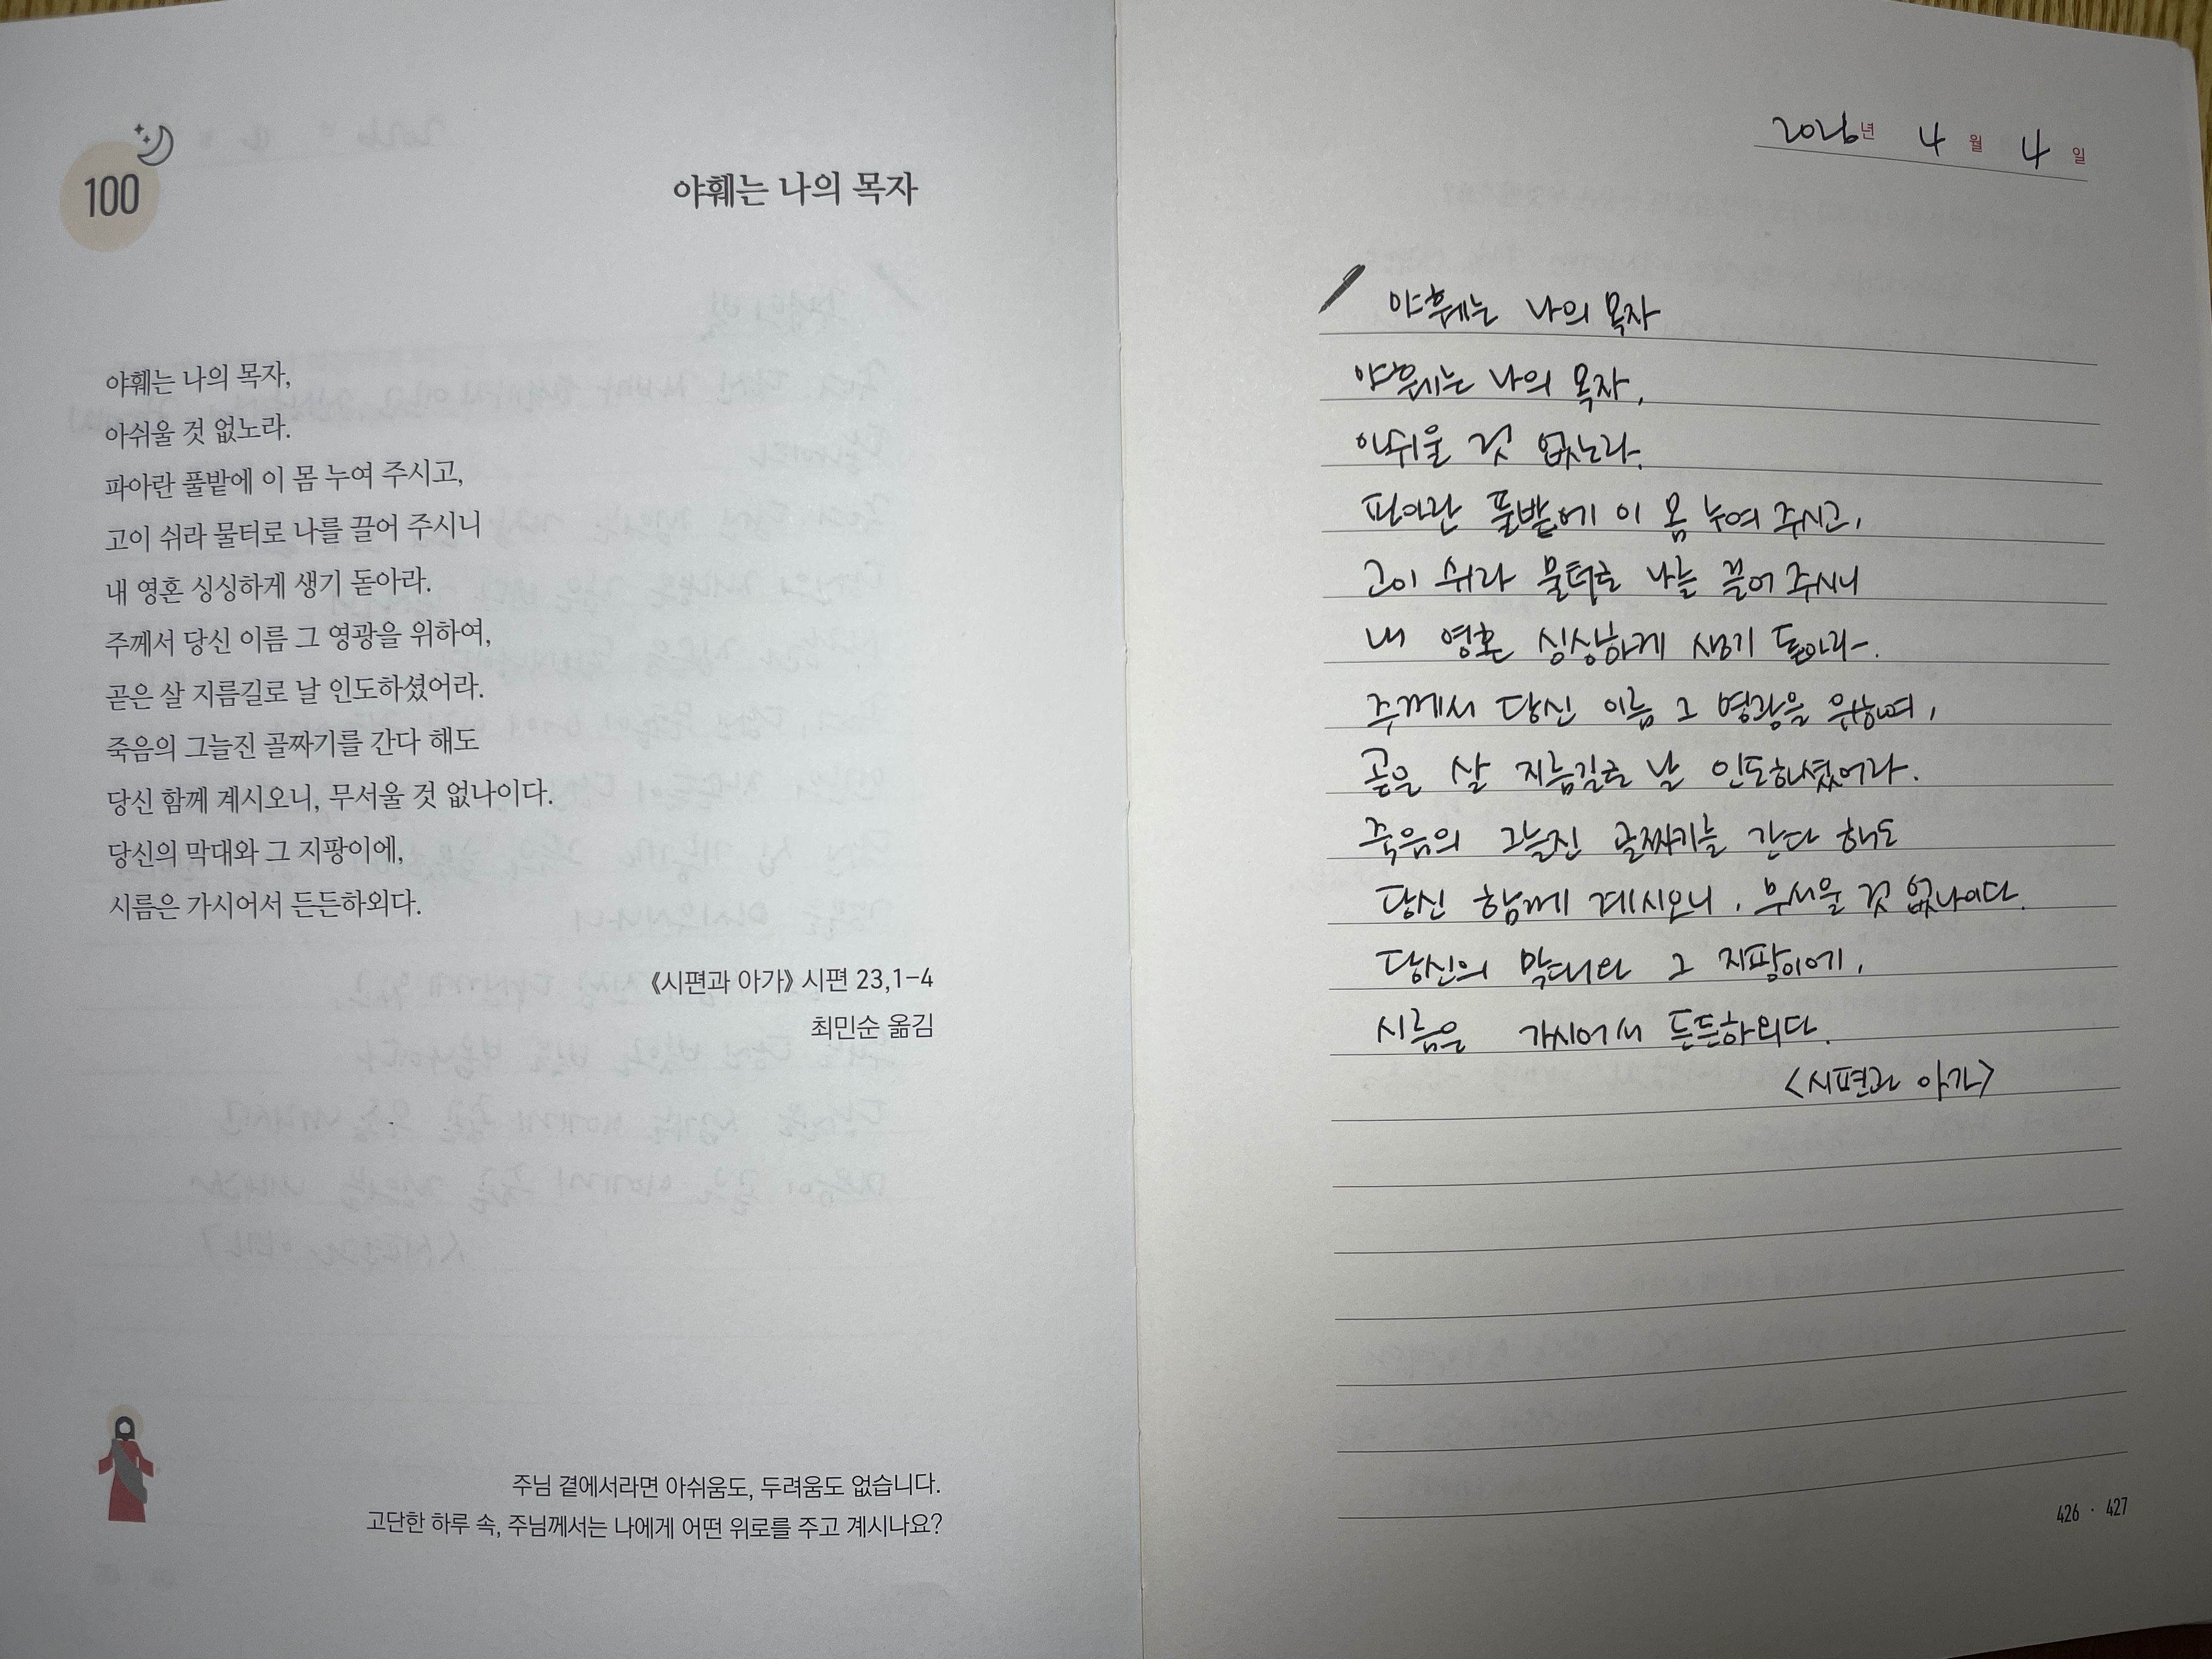 100
야훼는 나의 목자
야훼는 나의 목자,
아쉬울 것 없노라.
파아란 풀밭에 이 몸 누여 주시고,
고이 쉬라 물터로 나를 끌어 주시니
내 영혼 싱싱하게 생기 돋아라.
주께서 당신 이름 그 영광을 위하여,
곧은 살 지름길로 날 인도하셨어라.
죽음의 그늘진 골짜기를 간다 해도
당신 함께 계시오니, 무서울 것 없나이다.
당신의 막대와 그 지팡이에,
시름은 가시어서 든든하외다.
《시편과 아가》 시편 23,1-4
최민순 옮김
주님 곁에서라면 아쉬움도, 두려움도 없습니다.
고단한 하루 속, 주님께서는 나에게 어떤 위로를 주고 계시나요?
2026년 4월 4일
야훼는 나의 목자
야훼는 나의 목자,
아쉬울 것 없노라.
파아란 풀밭에 이 몸 누여 주시고,
고이 쉬라 물터로 나를 끌어 주시니
내 영혼 싱싱하게 생기 돋아라.
주께서 당신 이름 그 영광을 위하여,
곧은 살 지름길로 날 인도하셨어라.
죽음의 그늘진 골짜기를 간다 해도
당신 함께 계시오니, 무서울 것 없나이다.
당신의 막대와 그 지팡이에,
시름은 가시어서 든든하외다.
<시편과 아가>
426 · 427